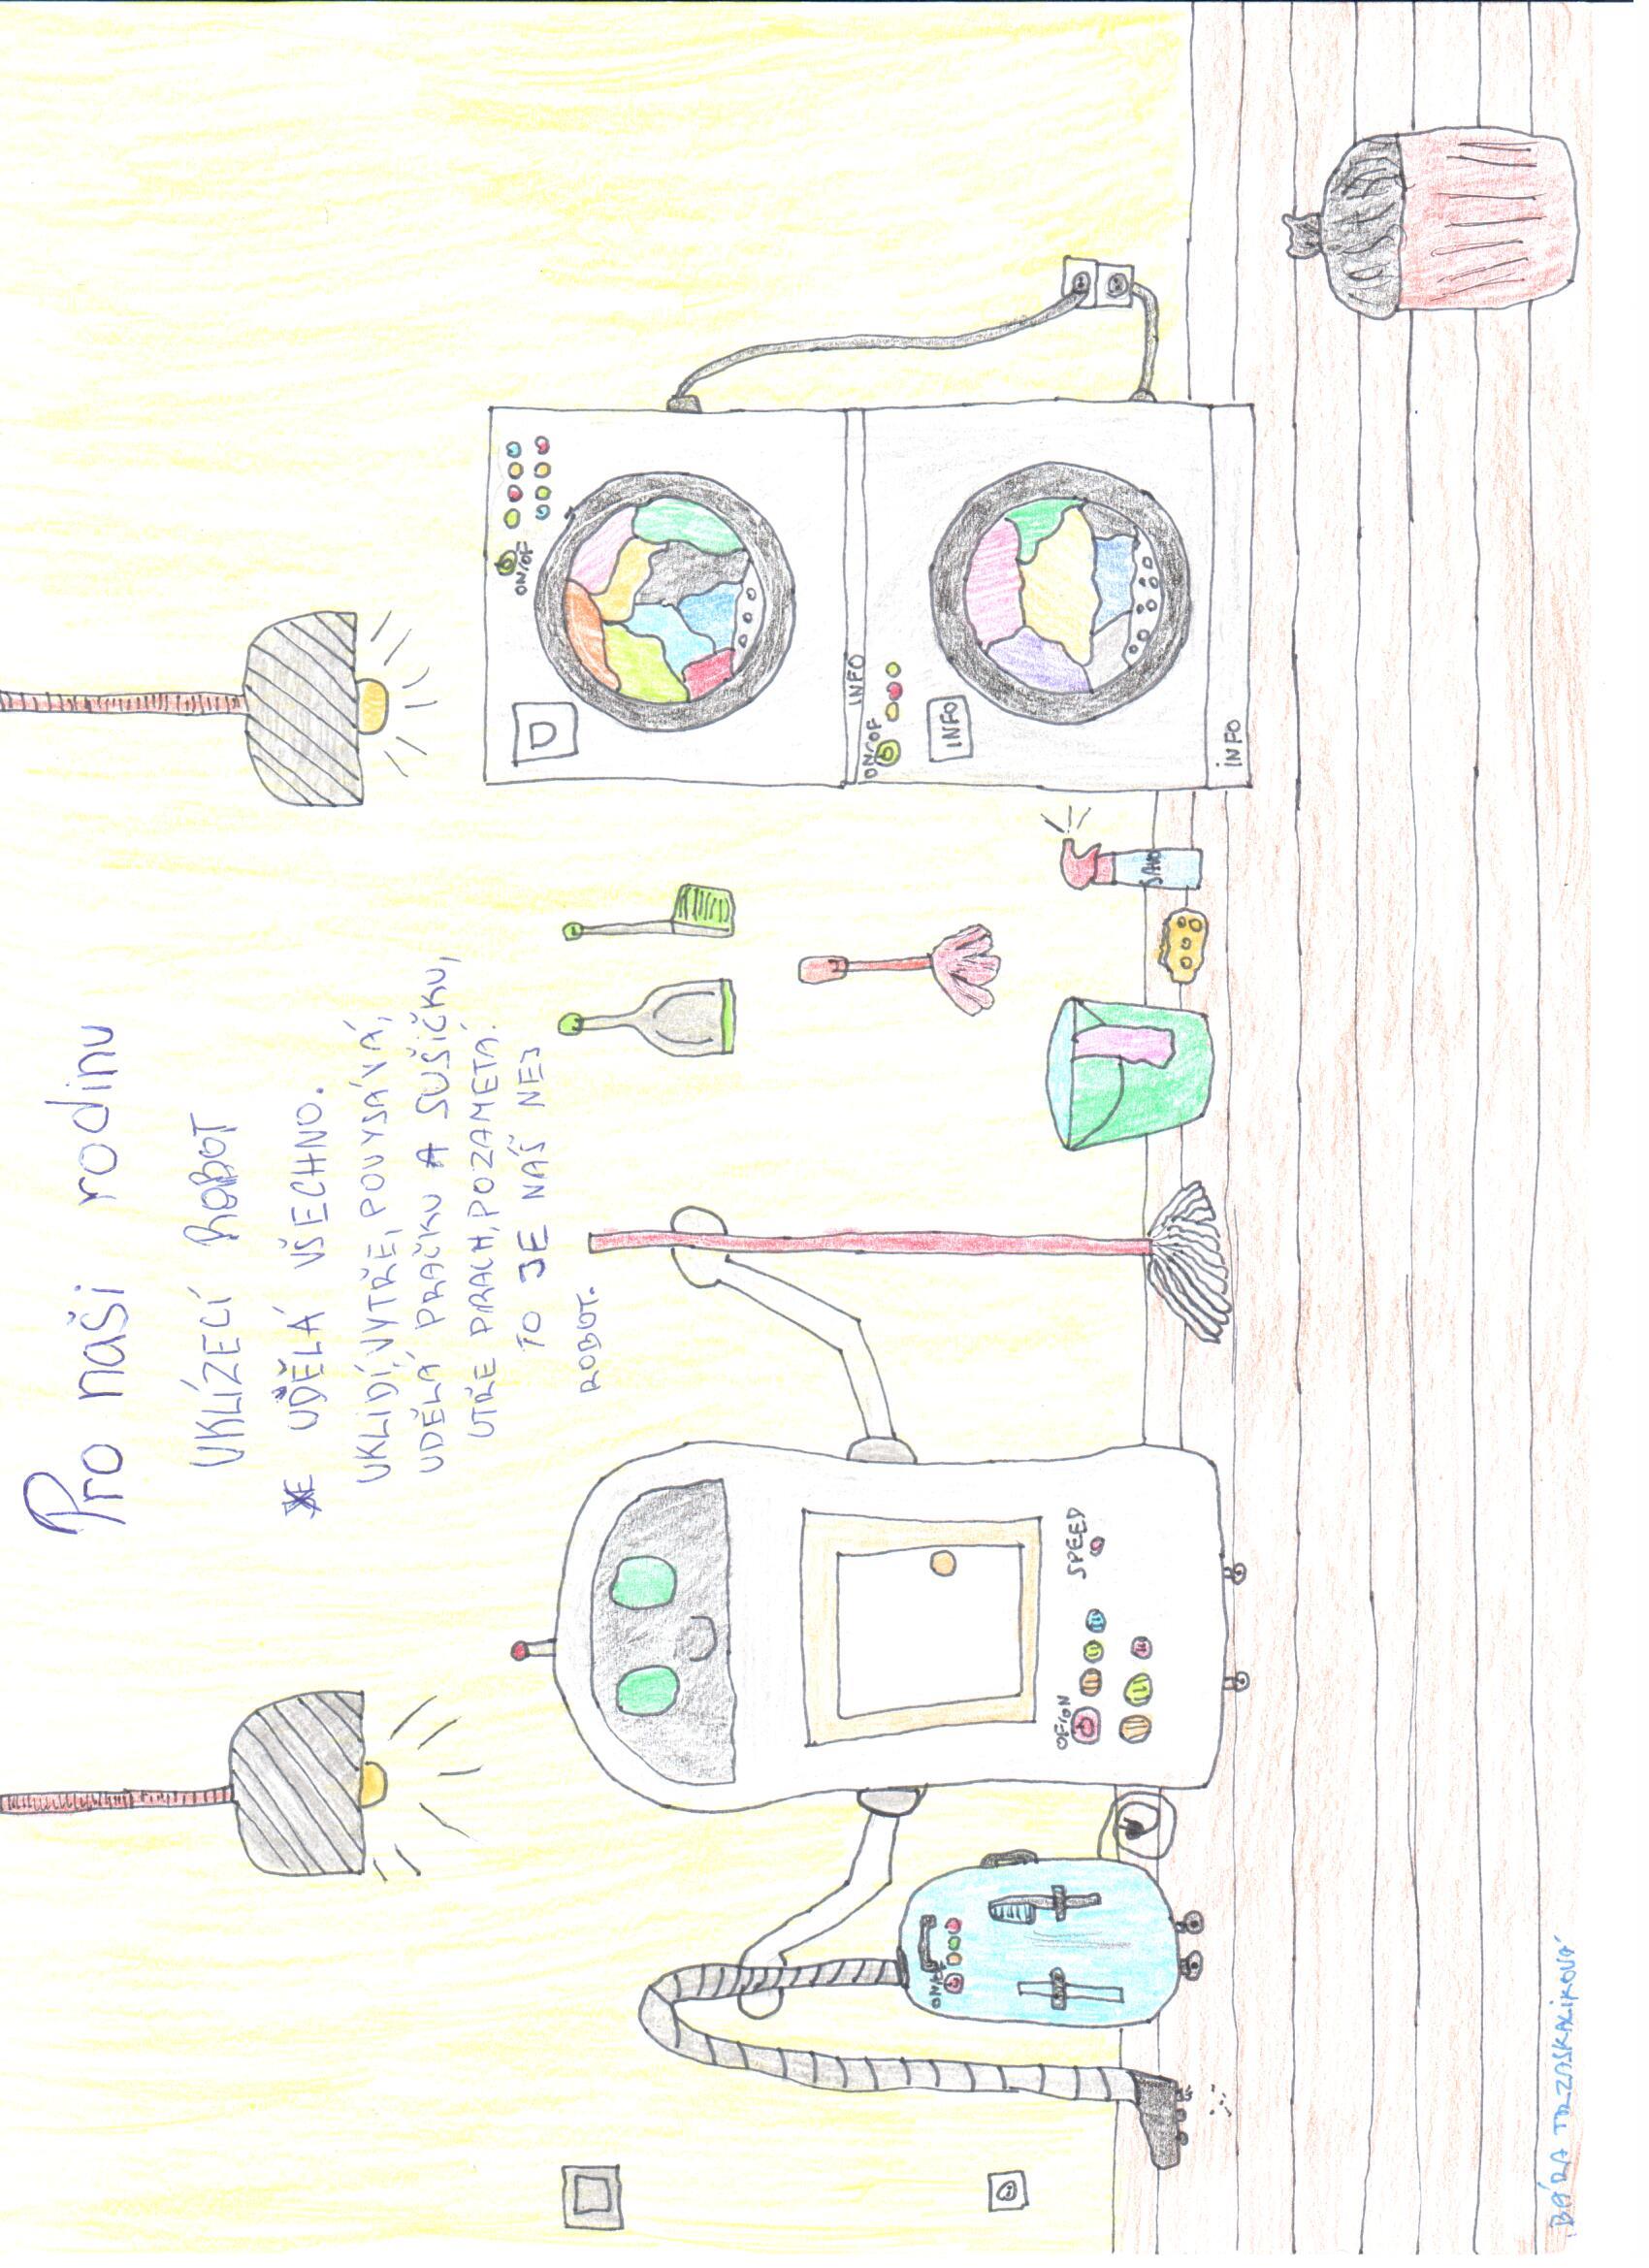 Pro naši rodinu
UKLÍZECÍ ROBOT
UDĚLÁ VŠECHNO.
UKLIDÍ, VYTŘE, POVYSÁVÁ,
UDĚLÁ PRAČKU A SUŠIČKU,
UTŘE PRACH, POZAMETÁ.
TO JE NÁŠ NEJ
ROBOT.
ON/OF
INFO
ON/OF
INFO
ON/OF
OF/ON
SPEED
SAVO
INFO
BÁRA TRZASKALIKOVÁ